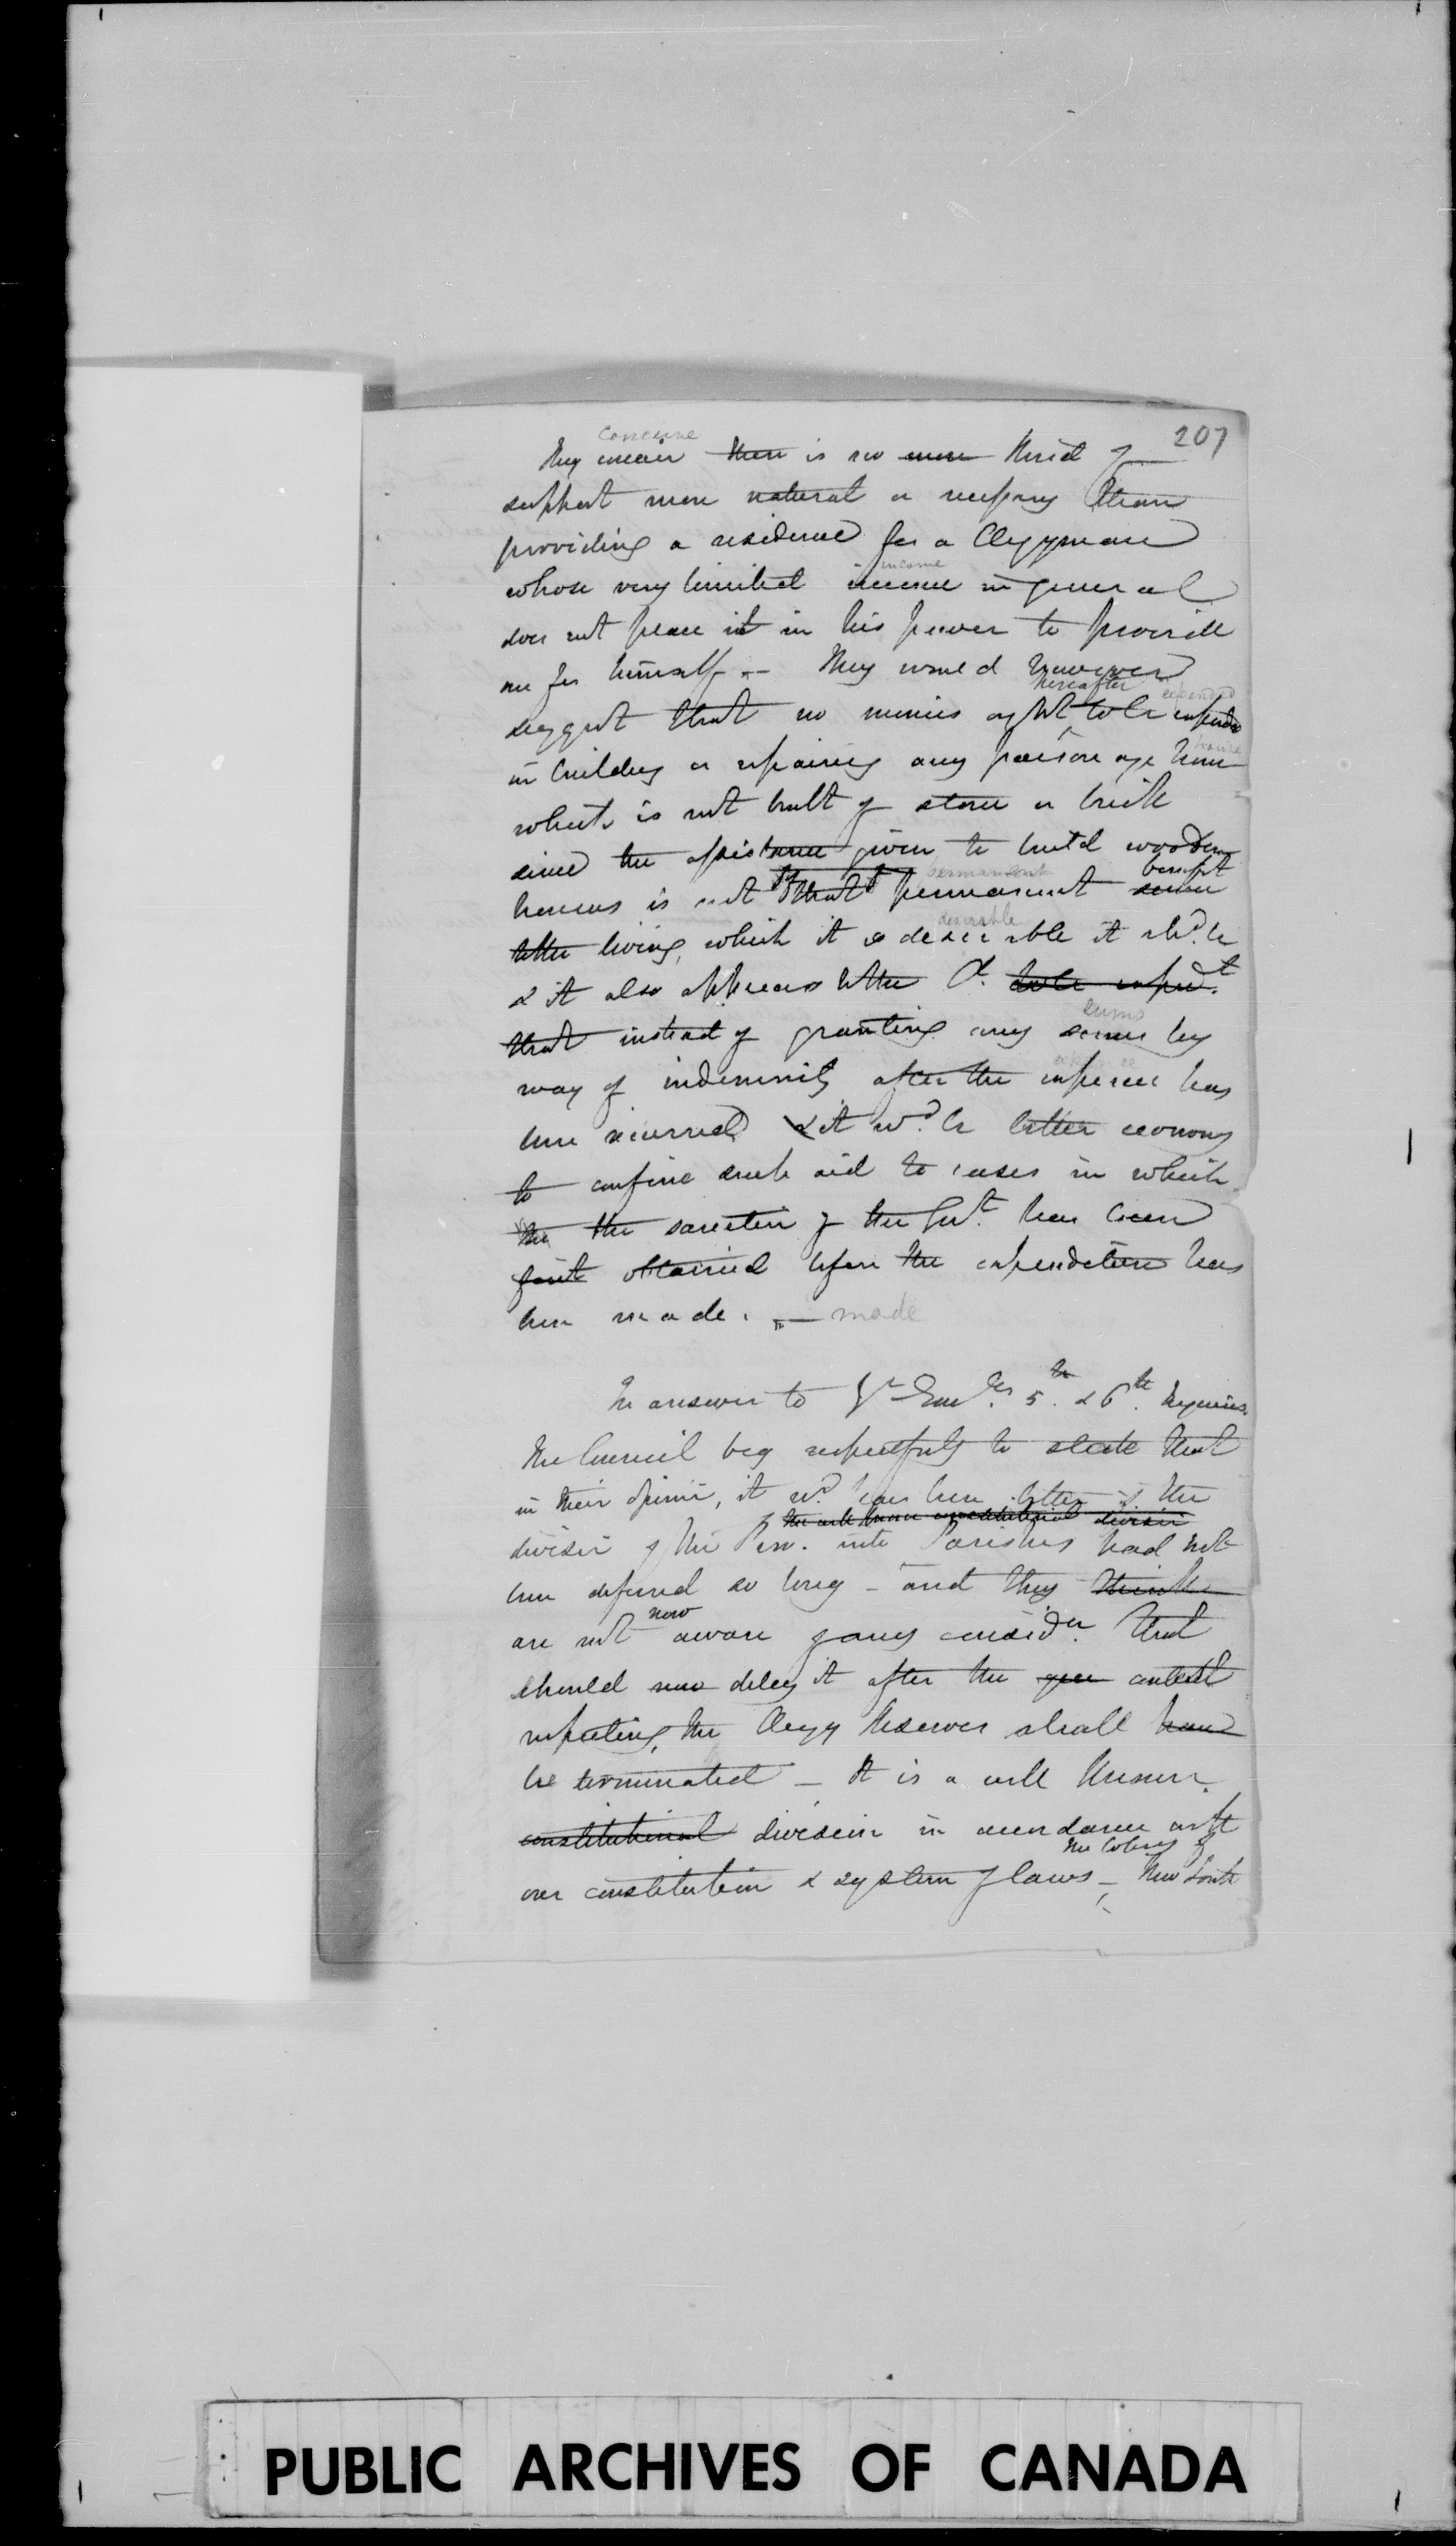 207
conceive
They conceive there is no more kind of
support more natural or necessary than
providing a residence for a Clergyman
income
whose very limited income in general
does not place it in his power to provide
one for himself. — They would however
hereafter expended
suggest that no monies ought to be expended
house
in building or repairing any parsonage house
which is not built of stone or brick
since the assistance given to build wooden
permanent benefit
houses is not that permanent
to the living, which it is desirable it shd. be
desirable
& it also appears to the C. to be expedt.
sums
that instead of granting any sums by
way of indemnity after the expense has
been incurred & it wd. be better economy
to confine such aid to cases in which
the the sanction of the Govt. has been
first obtained before the expenditure has
been made. — made
In answer to Yr Exc 5th. & 6th. Inquiries
the Council beg respectfully to state that
in their opinion, it wd. have been better if the
the well known constitutional division
division of the Prov. into Parishes had not
been deferred so long — and they think
now
are not aware of any considn. that
should now delay it after the contest
respecting the Clergy Reserves shall have
be terminated — It is a well known
constitutional division in accordance with
the Colony of
our constitution & system of laws — New South
PUBLIC ARCHIVES OF CANADA